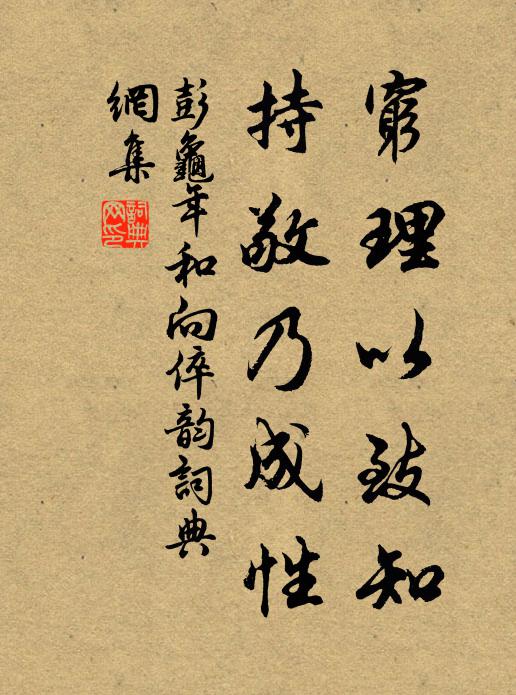 窮理以致知
持敬乃成性
彭龜年和向倅韵詞典
網集
詞典
网印